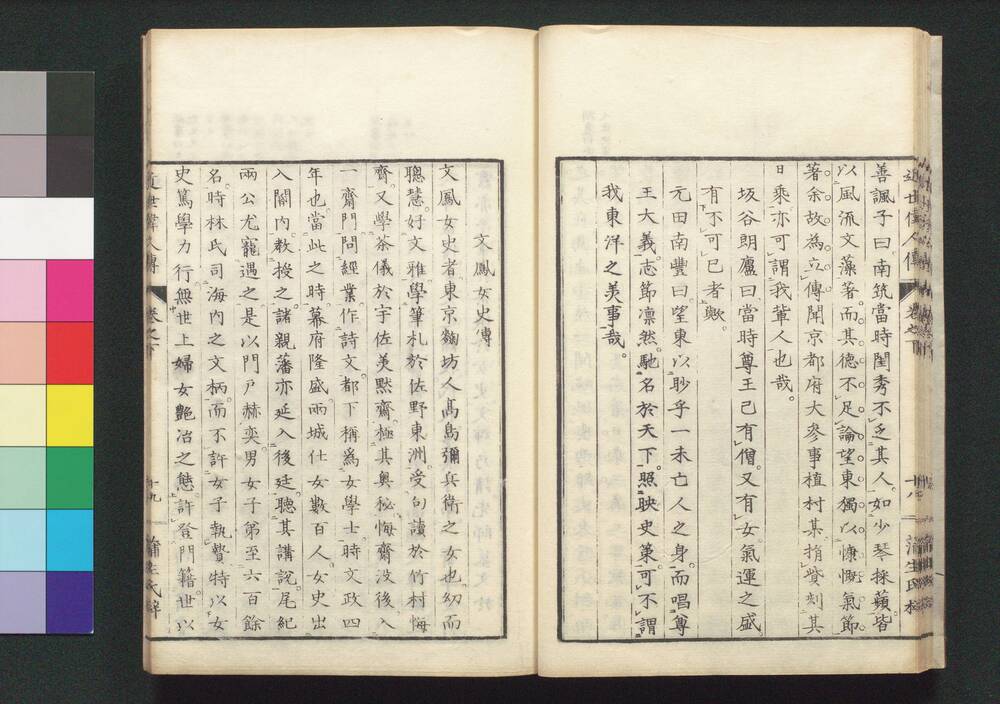 近世偉人傳
善諷子曰。南筑當時閨秀不乏其人。如少琴採蘋。皆
以風流文藻著。而其德不足論。望東獨以慷慨氣節
著。余故為立傳。聞京都府大參事植村某捐貲刻其
日乘。亦可謂我輩人也哉。
坂谷朗廬曰。當時尊王已有僧。又有女。氣運之盛
有不可已者歟。
元田南豐曰。望東以眇乎一未亡人之身。而唱尊
王大義。志節凛然。馳名於天下。照映史策。可不謂
我東洋之美事哉。
文鳳女史傳
文鳳女史者東京麴坊人高島彌兵衛之女也。幼而
聰慧。好文雅。學筆札於佐野東洲。受句讀於竹村悔
齋。又學茶儀於宇佐美默齋。極其奥秘。悔齋沒後入
一齋門。問經業。作詩文。都下稱爲女學士。時文政四
年也。當此之時。幕府隆盛。兩城仕女數百人。女史出
入關内。教授之。諸親藩亦延入後廷。聽其講說。尾紀
兩公尤寵遇之。是以門戸赫奕。男女子弟至六百餘
名。時林氏司海内之文柄。而不許女子執贄。特以女
史篤學力行無世上婦女艶冶之態。許登門籍。世以
近世偉人傳 卷之下 十九 蒲生氏梓